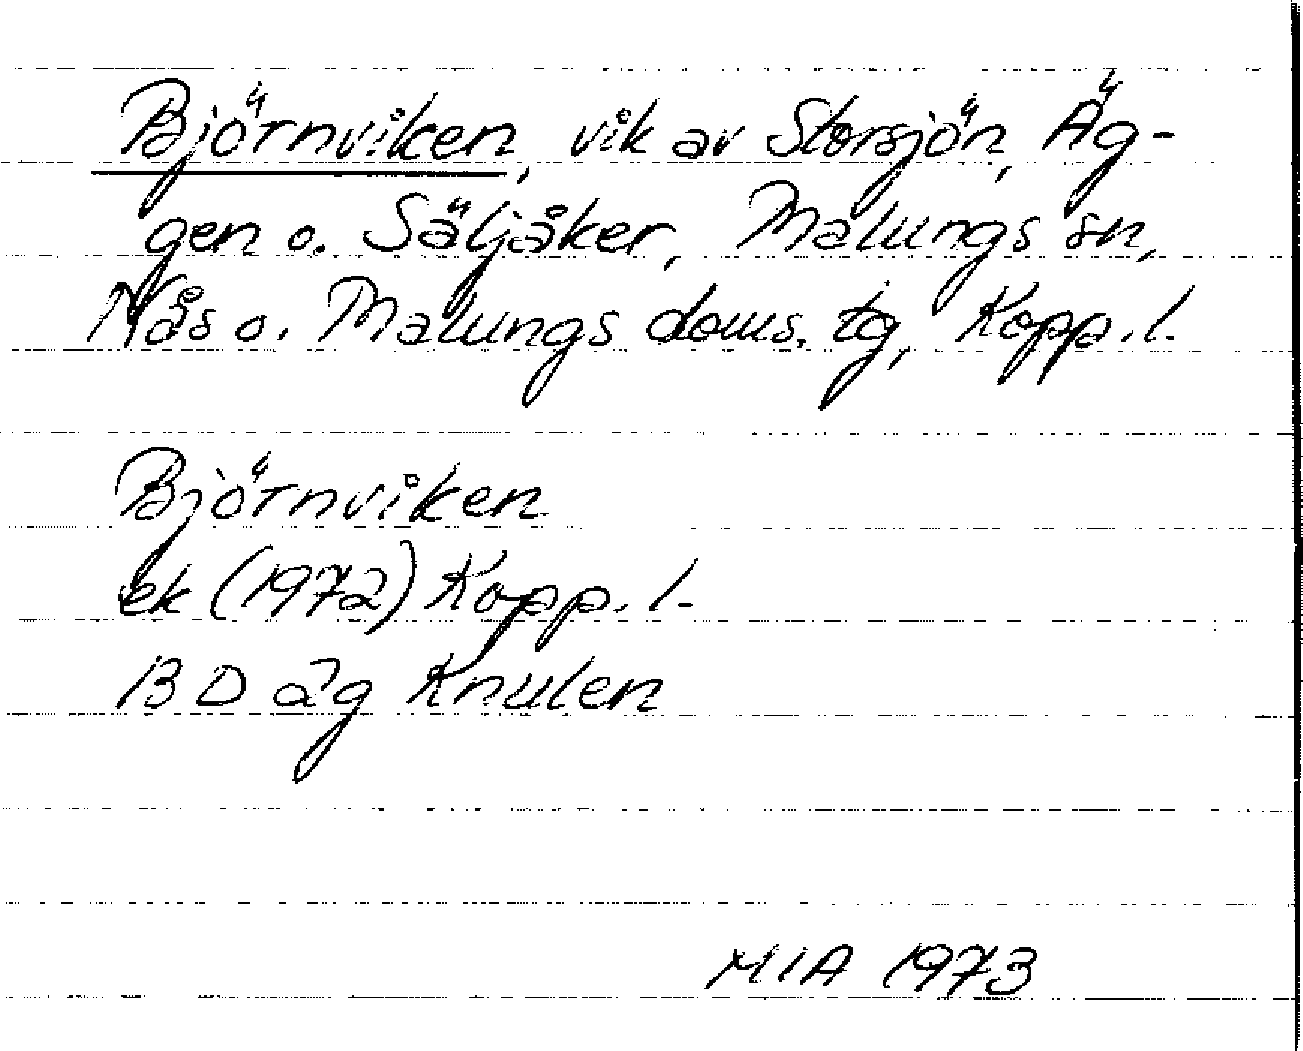 Björnviken, vik av Storsjön, Äg-
gen o. Säljåker, Malungs sn,
Nås o. Malungs doms. tg, Kopp. l.
Björnviken
ek (1972) Kopp. l.
BD äg Knulen
MIA 1973